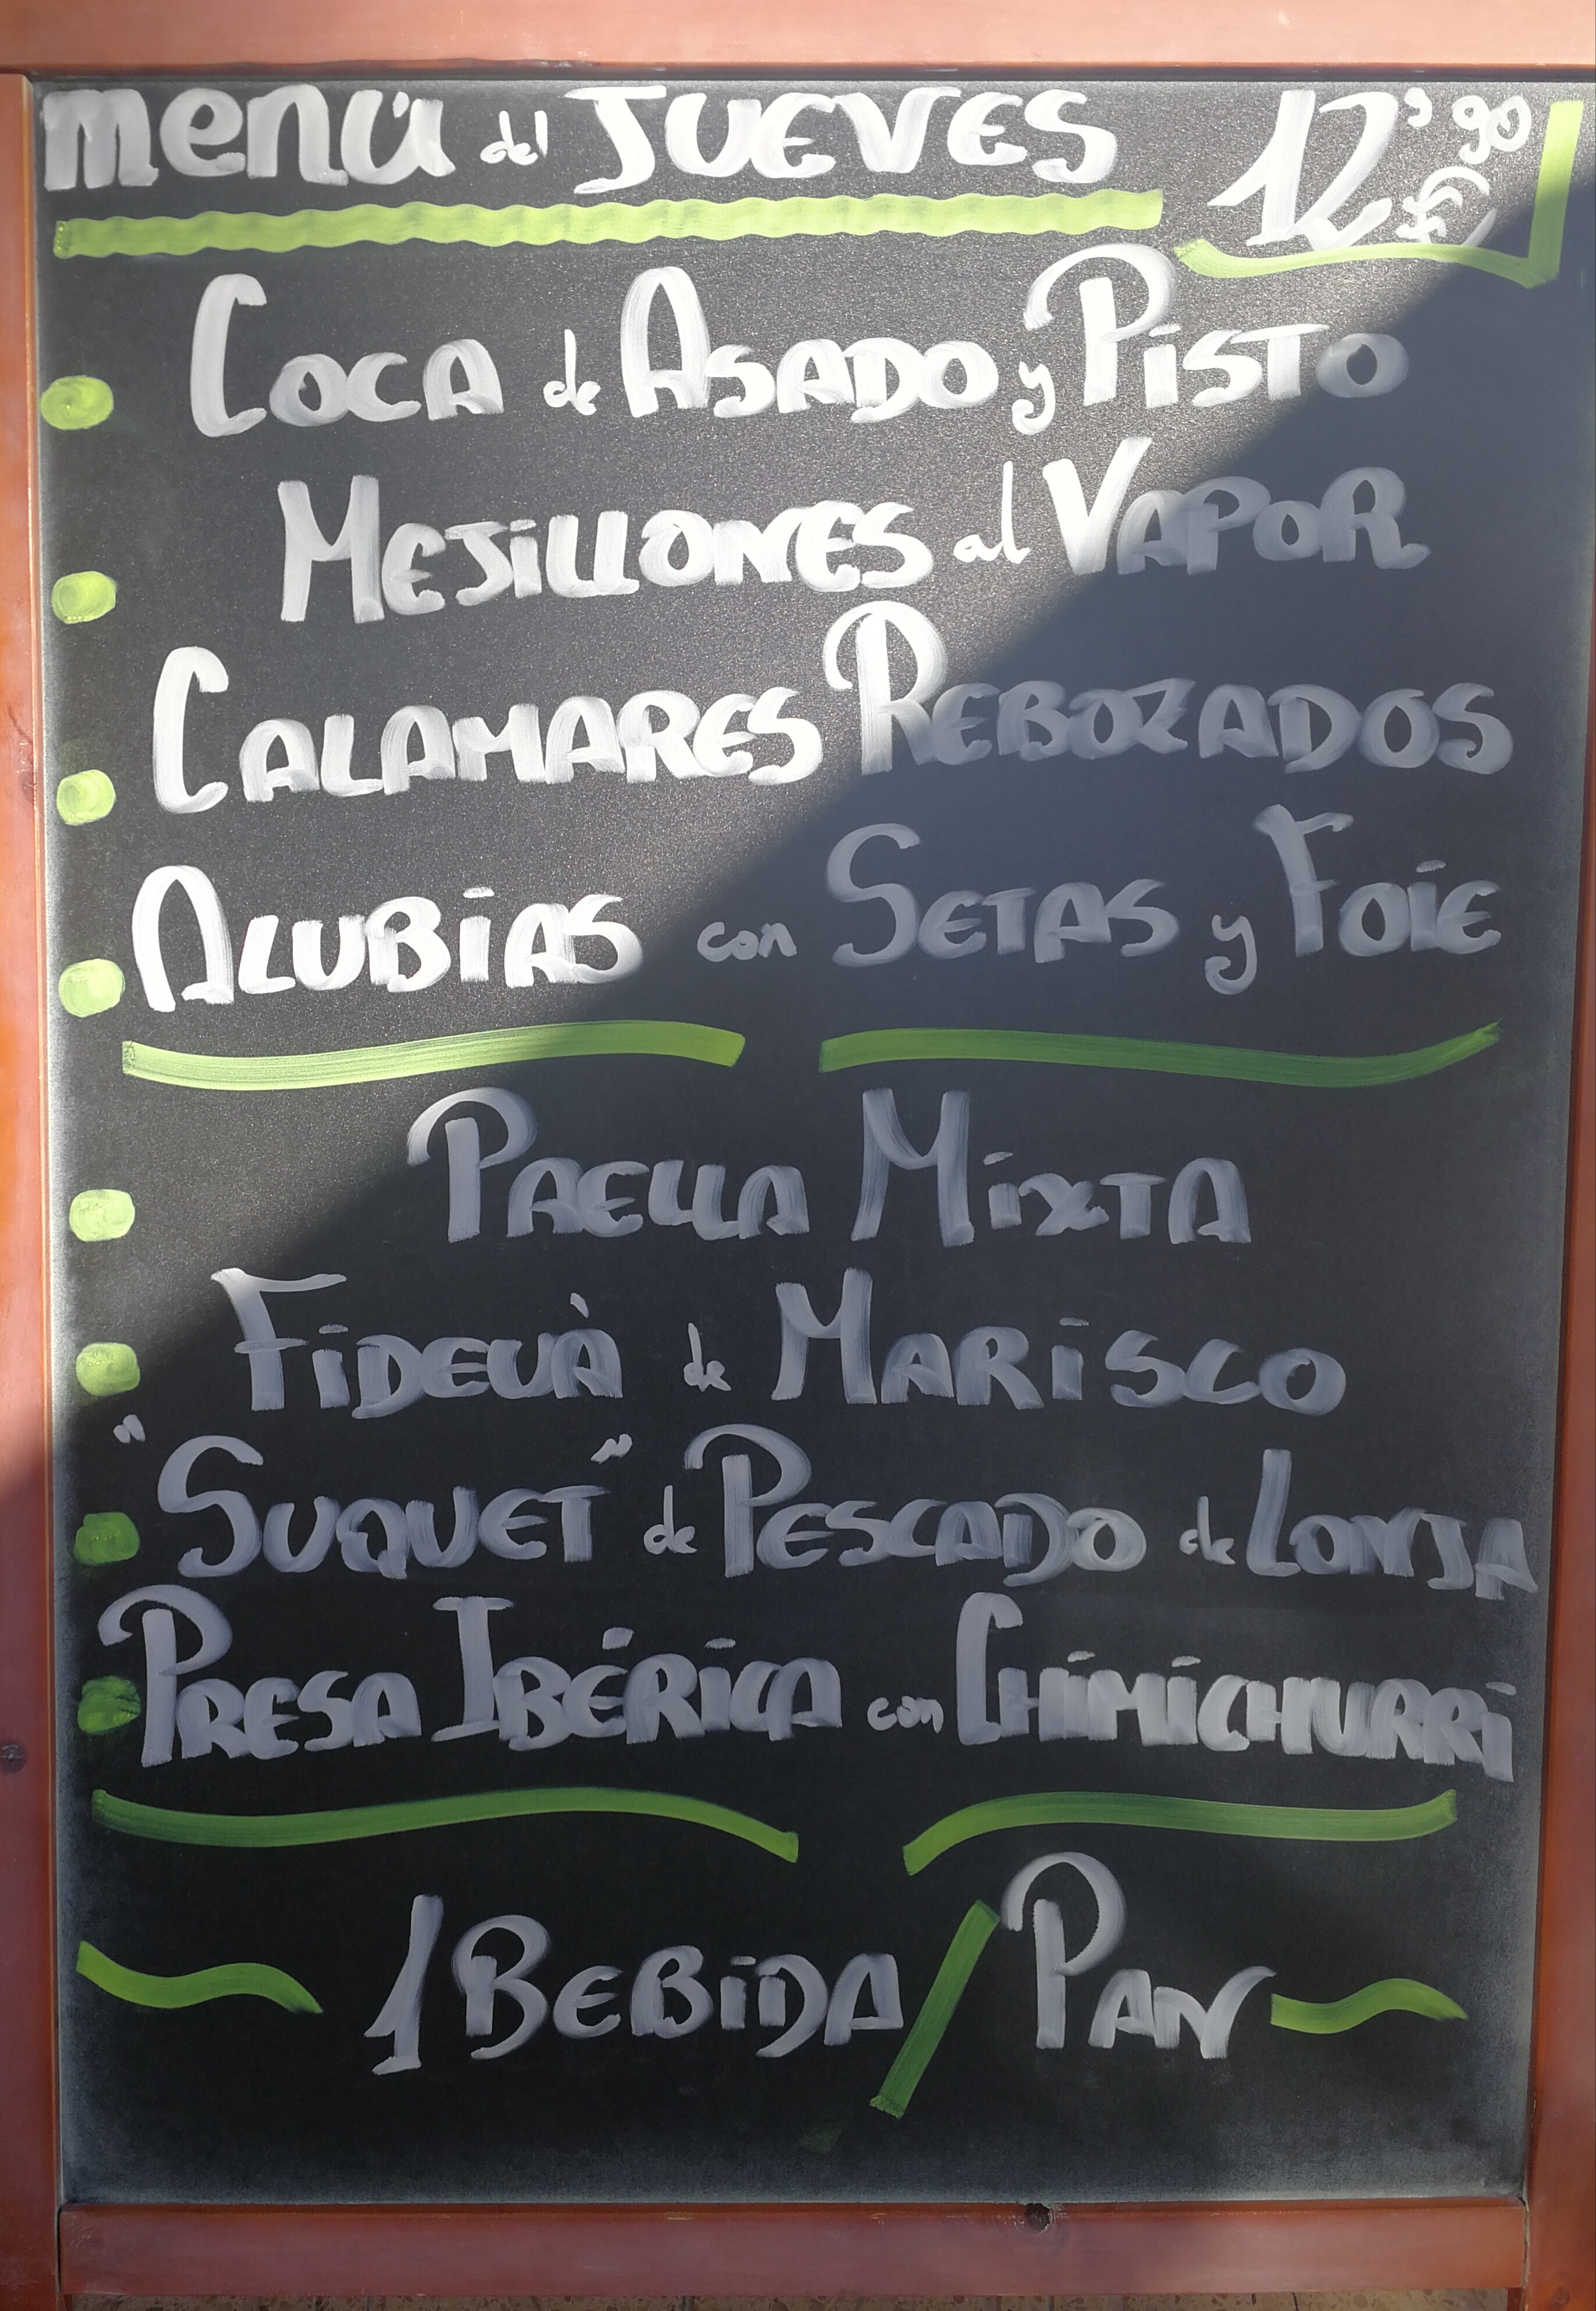 menú del JUEVES 12'90 €
COCA de ASADO y PISTO
MEJILLONES al VAPOR
CALAMARES REBOZADOS
ALUBIAS con SETAS y FOIE
PAELLA MIXTA
FIDEUÀ de MARISCO
"SUQUET" de PESCADO de LONJA
PRESA IBÉRICA con CHIMICHURRI
1 BEBIDA / PAN